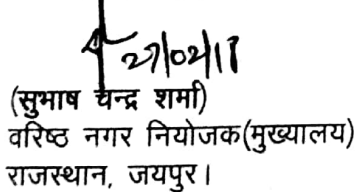 27/02/18
(सुभाष चन्द्र शर्मा)
वरिष्ठ नगर नियोजक(मुख्यालय)
राजस्थान, जयपुर।